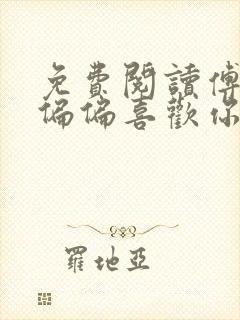 免費閱讀傅
偏偏喜歡你
羅地亞